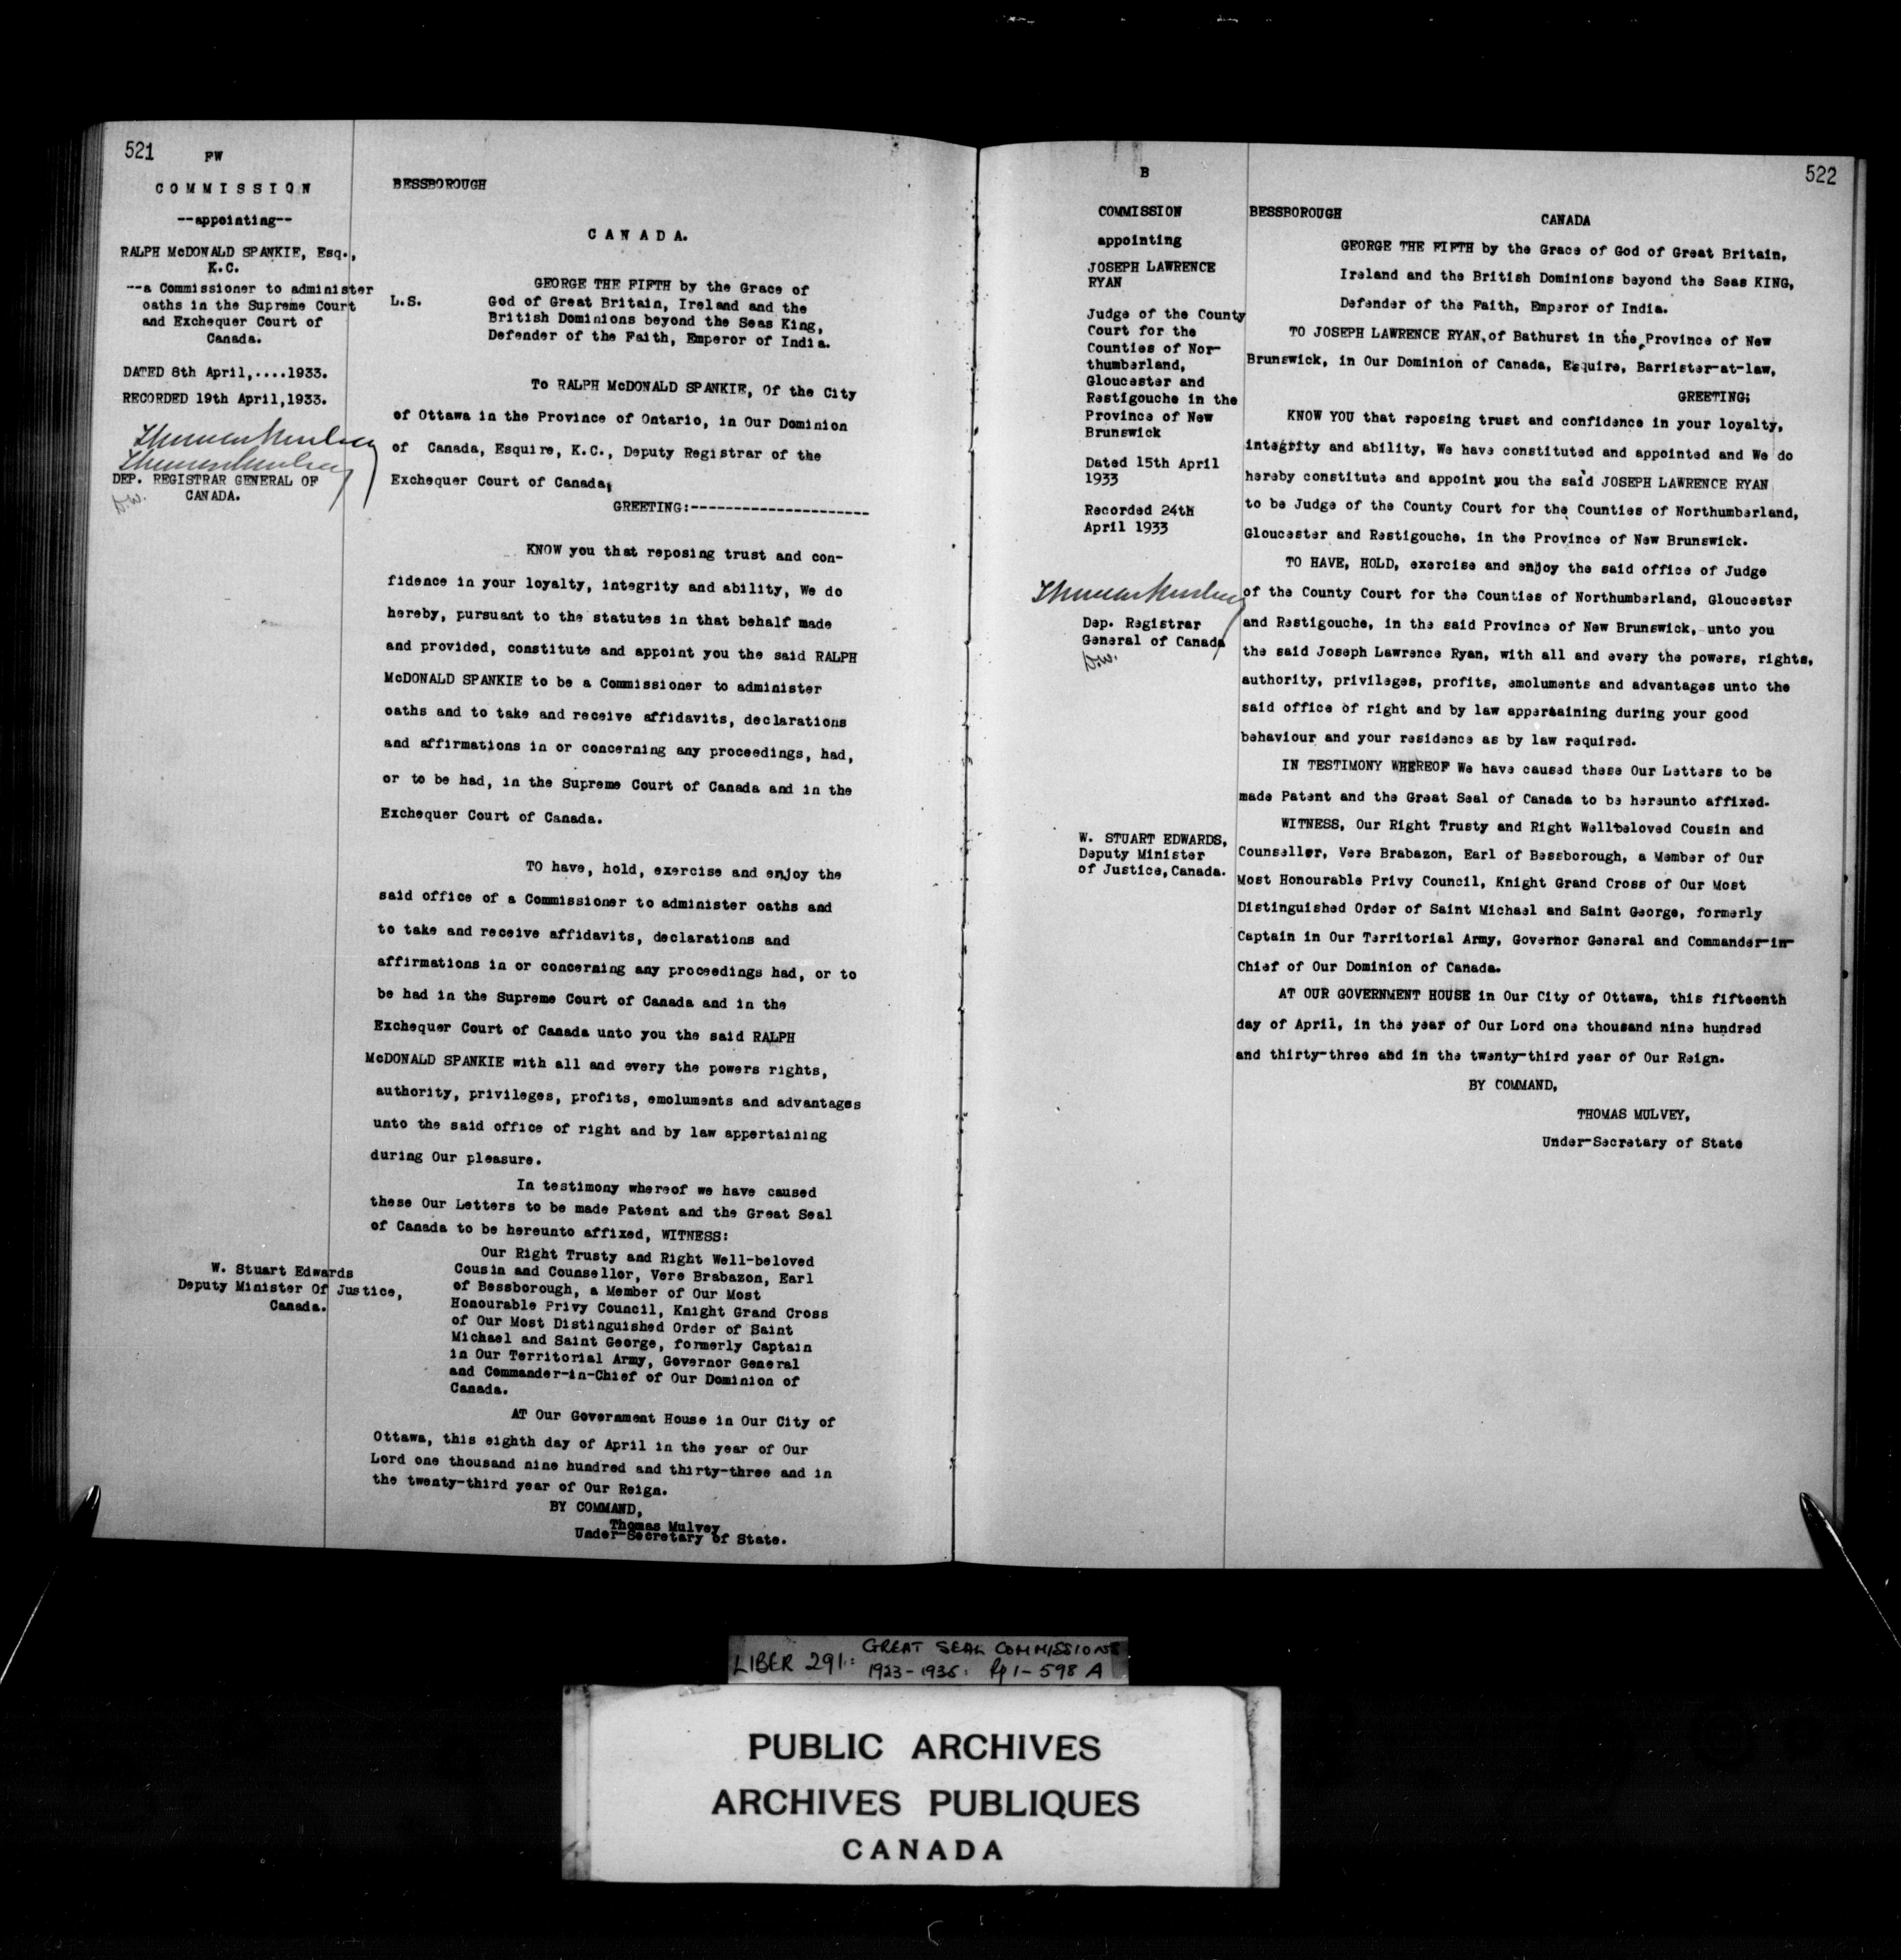 521
PW
COMMISSION
--appointing--
RALPH McDONALD SPANKIE, Esq.,
K.C.
--a Commissioner to administer
oaths in the Supreme Court
and Exchequer Court of
Canada.
DATED 8th April,....1933.
RECORDED 19th April,1933.
Thomas Mulvey
Thomas Mulvey
DEP. REGISTRAR GENERAL OF
CANADA.
D.W.
W. Stuart Edwards
Deputy Minister Of Justice,
Canada.
BESSBOROUGH
CANADA.
L.S.
GEORGE THE FIFTH by the Grace of
God of Great Britain, Ireland and the
British Dominions beyond the Seas King,
Defender of the Faith, Emperor of India.
To RALPH McDONALD SPANKIE, Of the City
of Ottawa in the Province of Ontario, in Our Dominion
of Canada, Esquire, K.C., Deputy Registrar of the
Exchequer Court of Canada,
GREETING:---------------------
KNOW you that reposing trust and con-
fidence in your loyalty, integrity and ability, We do
hereby, pursuant to the statutes in that behalf made
and provided, constitute and appoint you the said RALPH
McDONALD SPANKIE to be a Commissioner to administer
oaths and to take and receive affidavits, declarations
and affirmations in or concerning any proceedings, had,
or to be had, in the Supreme Court of Canada and in the
Exchequer Court of Canada.
TO have, hold, exercise and enjoy the
said office of a Commissioner to administer oaths and
to take and receive affidavits, declarations and
affirmations in or concerning any proceedings had, or to
be had in the Supreme Court of Canada and in the
Exchequer Court of Canada unto you the said RALPH
McDONALD SPANKIE with all and every the powers rights,
authority, privileges, profits, emoluments and advantages
unto the said office of right and by law appertaining
during Our pleasure.
In testimony whereof we have caused
these Our Letters to be made Patent and the Great Seal
of Canada to be hereunto affixed, WITNESS:
Our Right Trusty and Right Well-beloved
Cousin and Counsellor, Vere Brabazon, Earl
of Bessborough, a Member of Our Most
Honourable Privy Council, Knight Grand Cross
of Our Most Distinguished Order of Saint
Michael and Saint George, formerly Captain
in Our Territorial Army, Governor General
and Commander-in-Chief of Our Dominion of
Canada.
AT Our Government House in Our City of
Ottawa, this eighth day of April in the year of Our
Lord one thousand nine hundred and thirty-three and in
the twenty-third year of Our Reign.
BY COMMAND,
Thomas Mulvey
Under-Secretary of State.
522
B
COMMISSION
appointing
JOSEPH LAWRENCE
RYAN
Judge of the County
Court for the
Counties of Nor-
thumberland,
Gloucester and
Restigouche in the
Province of New
Brunswick
Dated 15th April
1933
Recorded 24th
April 1933
Thomas Mulvey
Dep. Registrar
General of Canada
D.W.
W. STUART EDWARDS,
Deputy Minister
of Justice, Canada.
BESSBOROUGH
CANADA
GEORGE THE FIFTH by the Grace of God of Great Britain,
Ireland and the British Dominions beyond the Seas KING,
Defender of the Faith, Emperor of India.
TO JOSEPH LAWRENCE RYAN, of Bathurst in the Province of New
Brunswick, in Our Dominion of Canada, Esquire, Barrister-at-law,
GREETING:
KNOW YOU that reposing trust and confidence in your loyalty,
integrity and ability, We have constituted and appointed and We do
hereby constitute and appoint you the said JOSEPH LAWRENCE RYAN
to be Judge of the County Court for the Counties of Northumberland,
Gloucester and Restigouche, in the Province of New Brunswick.
TO HAVE, HOLD, exercise and enjoy the said office of Judge
of the County Court for the Counties of Northumberland, Gloucester
and Restigouche, in the said Province of New Brunswick, unto you
the said Joseph Lawrence Ryan, with all and every the powers, rights,
authority, privileges, profits, emoluments and advantages unto the
said office of right and by law appertaining during your good
behaviour and your residence as by law required.
IN TESTIMONY WHEREOF We have caused these Our Letters to be
made Patent and the Great Seal of Canada to be hereunto affixed.
WITNESS, Our Right Trusty and Right Wellbeloved Cousin and
Counsellor, Vere Brabazon, Earl of Bessborough, a Member of Our
Most Honourable Privy Council, Knight Grand Cross of Our Most
Distinguished Order of Saint Michael and Saint George, formerly
Captain in Our Territorial Army, Governor General and Commander-in-
Chief of Our Dominion of Canada.
AT OUR GOVERNMENT HOUSE in Our City of Ottawa, this fifteenth
day of April, in the year of Our Lord one thousand nine hundred
and thirty-three and in the twenty-third year of Our Reign.
BY COMMAND,
THOMAS MULVEY,
Under-Secretary of State
LIBER 291: GREAT SEAL COMMISSIONS
1923-1936. Pp 1-598 A
PUBLIC ARCHIVES
ARCHIVES PUBLIQUES
CANADA